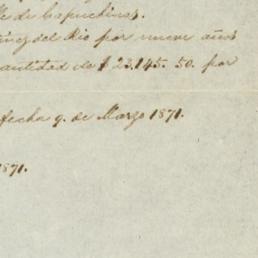 de Capuchinas.
del Rio por nueve años
cantidad de $ 23,145. 50. por
fecha 9. de Marzo 1871.
1871.